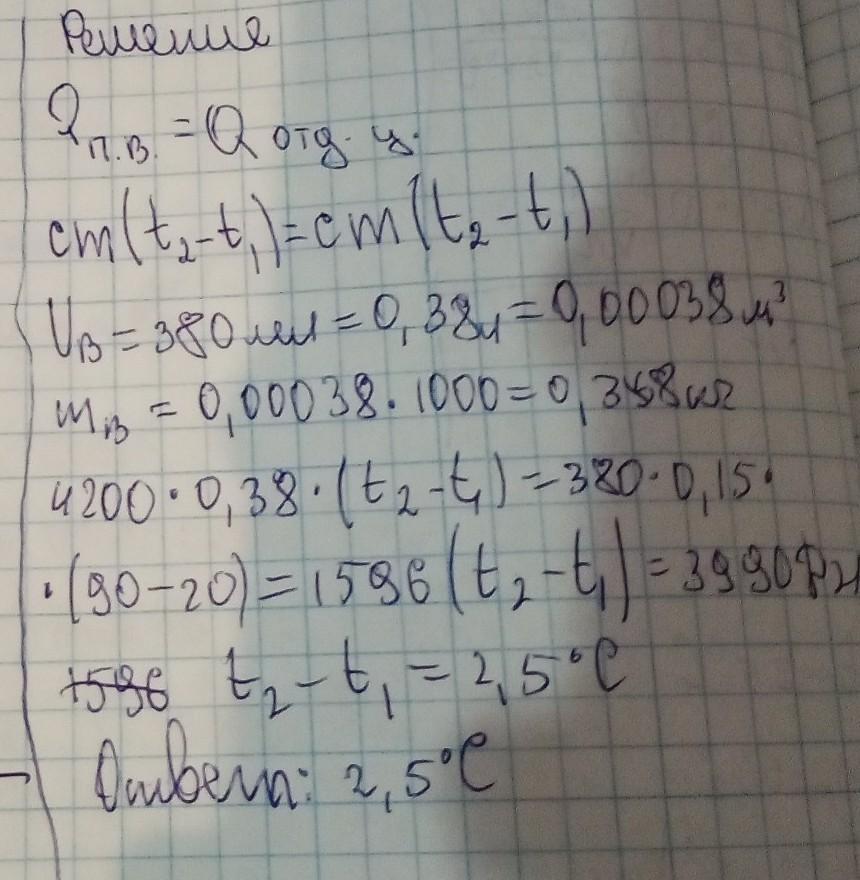 Решение
Qп.в. = Q отд. ц.
cm(t₂-t₁)=cm(t₂-t₁)
Vв = 380 мл = 0,38л = 0,00038 м³
mв = 0,00038 · 1000 = 0,38 кг
4200 · 0,38 · (t₂-t₁) = 380 · 0,15 ·
· (90-20) = 1596 (t₂-t₁) = 3990 Дж
1596 t₂ - t₁ = 2,5°C
Ответ: 2,5°C